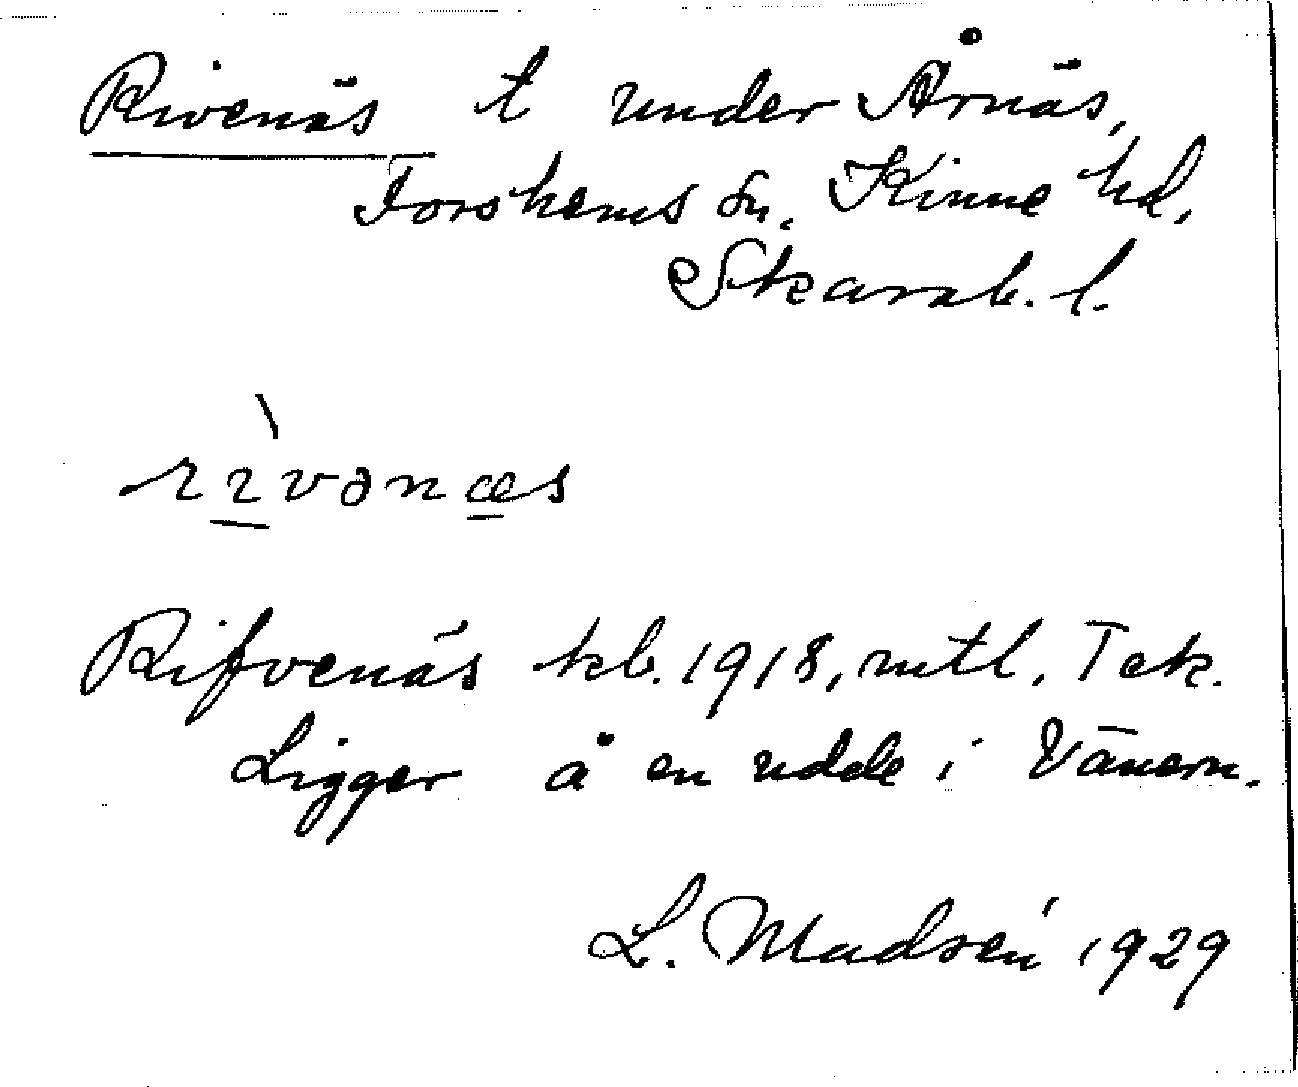 Rivenäs t under Årnäs,
Forshems sn. Kinne hd,
Skarab. l.
rɩ̀vənæs
Rifvenäs kb. 1918, mtl, Tek.
Ligger å en udde i Vänern.
L. Madsén 1929